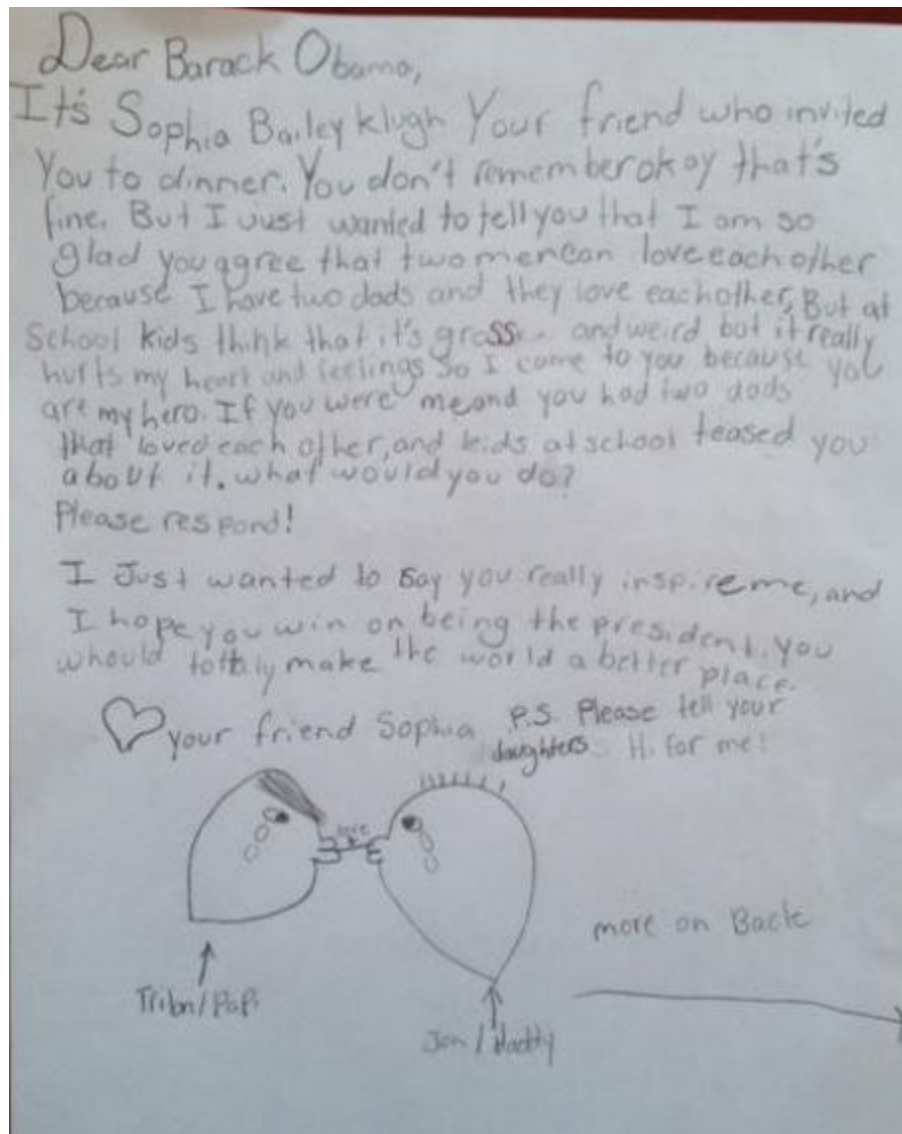 Dear Barack Obama,
It's Sophia Bailey klugh Your friend who invited
You to dinner. You don't remember okay that's
fine. But I Just wanted to tell you that I am so
glad you agree that two men can love each other
because I have two dads and they love each other, But at
School kids think that it's gross and weird but it really
hurts my heart and feelings So I come to you because you
are my hero. If you were me and you had two dads
that loved each other, and kids at school teased you
about it. what would you do?
Please respond!
I Just wanted to say you really inspire me, and
I hope you win on being the president. you
whould tottaly make the world a better place.
your friend Sophia P.S. Please tell your
daughters Hi for me!
love
more on Back
/Popi
Jon / daddy